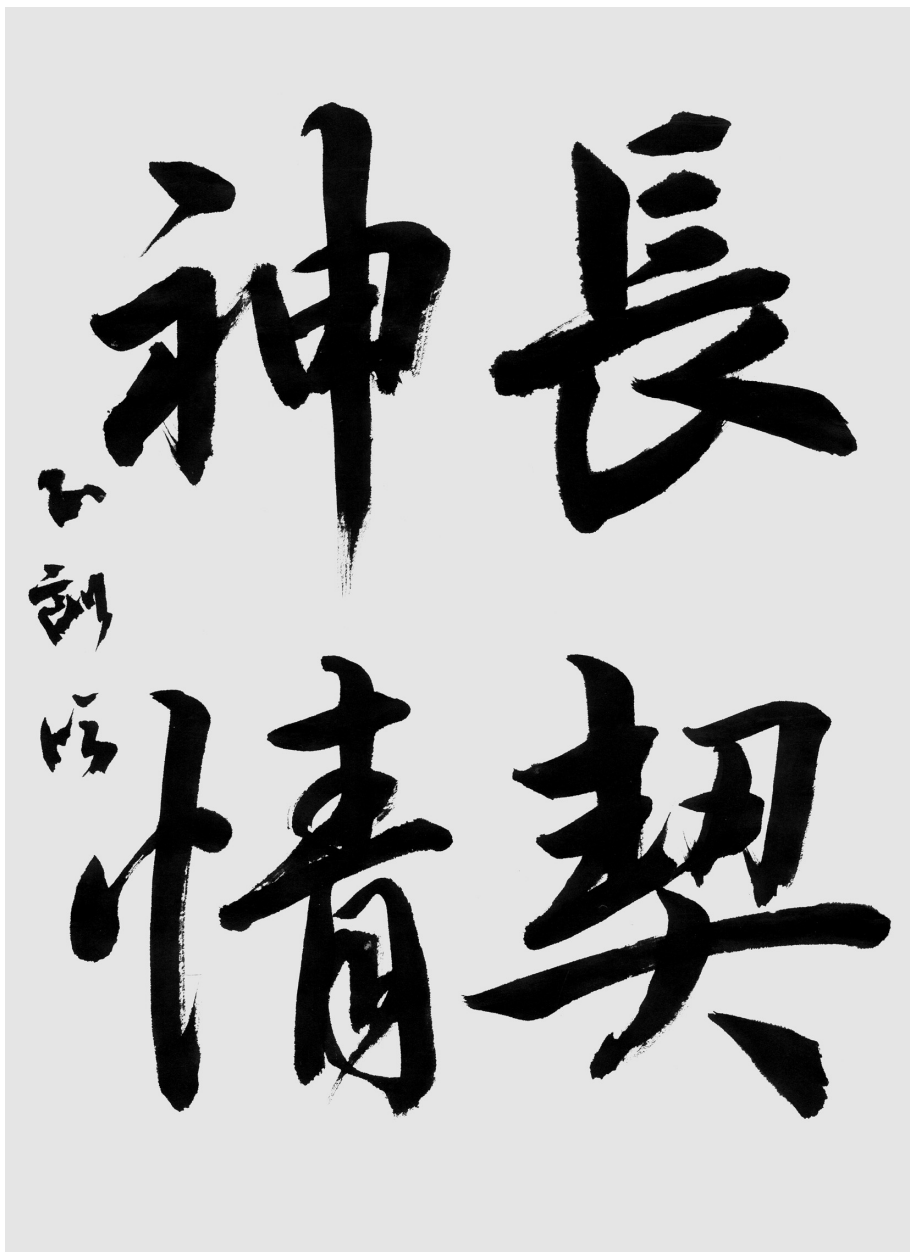 長契
神情